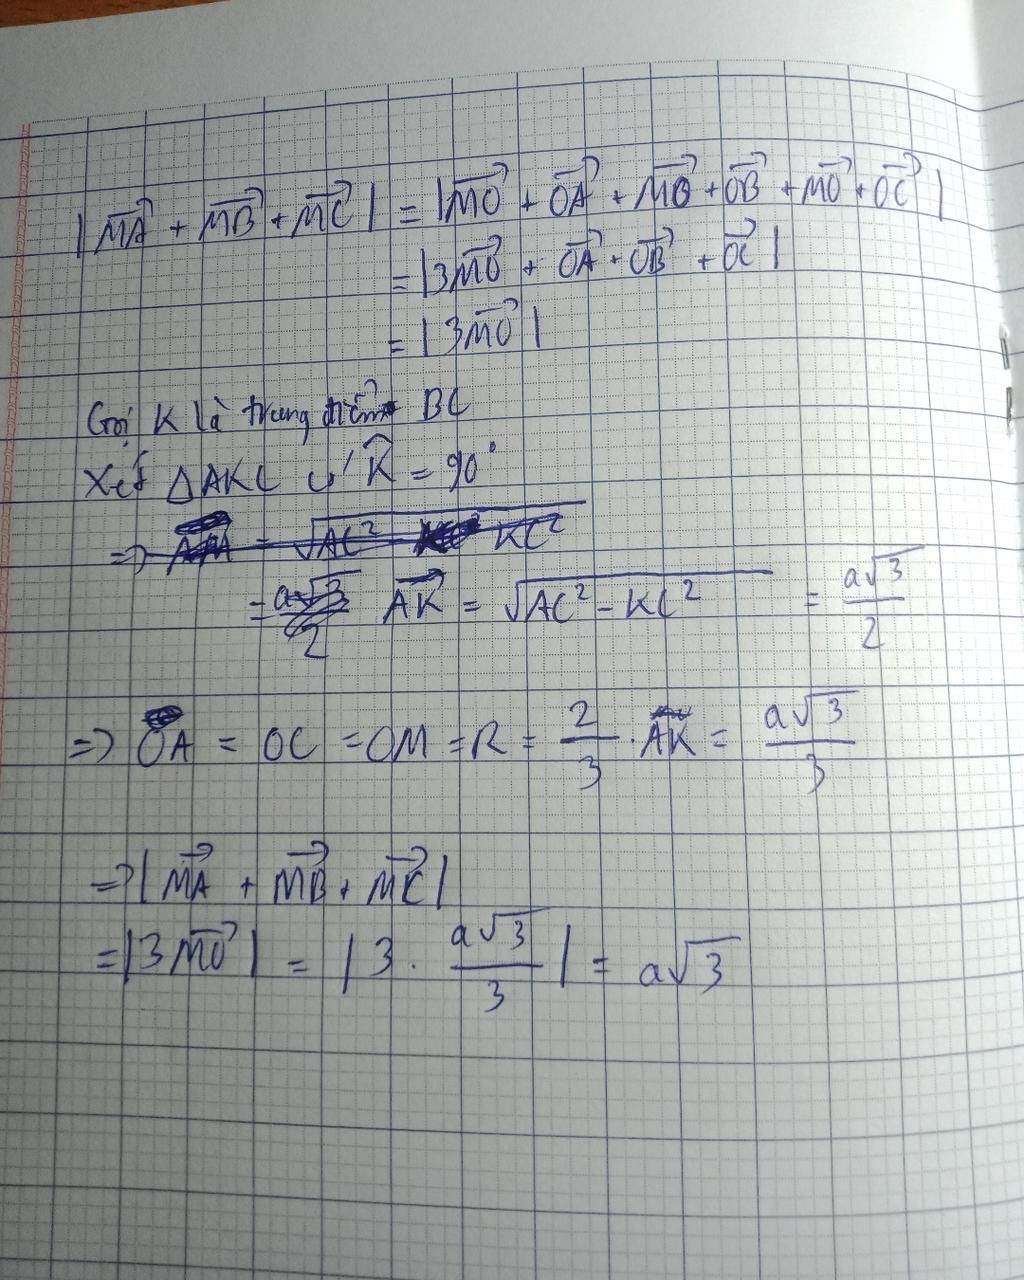 |MA⃗ + MB⃗ + MC⃗| = |MO⃗ + OA⃗ + MO⃗ + OB⃗ + MO⃗ + OC⃗|
= |3MO⃗ + OA⃗ + OB⃗ + OC⃗|
= |3MO⃗|
Gọi K là trung điểm BC
Xét ΔAKC có K̂ = 90°
=> = √AC² KC²
= a√3/2 AK⃗ = √AC² - KC² = a√3/2
=> OA = OC = OM = R = 2/3 . AK = a√3/3
=> |MA⃗ + MB⃗ + MC⃗|
= |3MO⃗| = |3 . a√3/3| = a√3